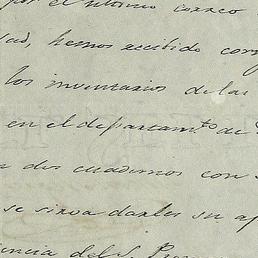 por el ultimo correo
dad, hemos recibido
los inventarios de las
en el departamto de
dos cuadernos con
se sirva darles su
del S.